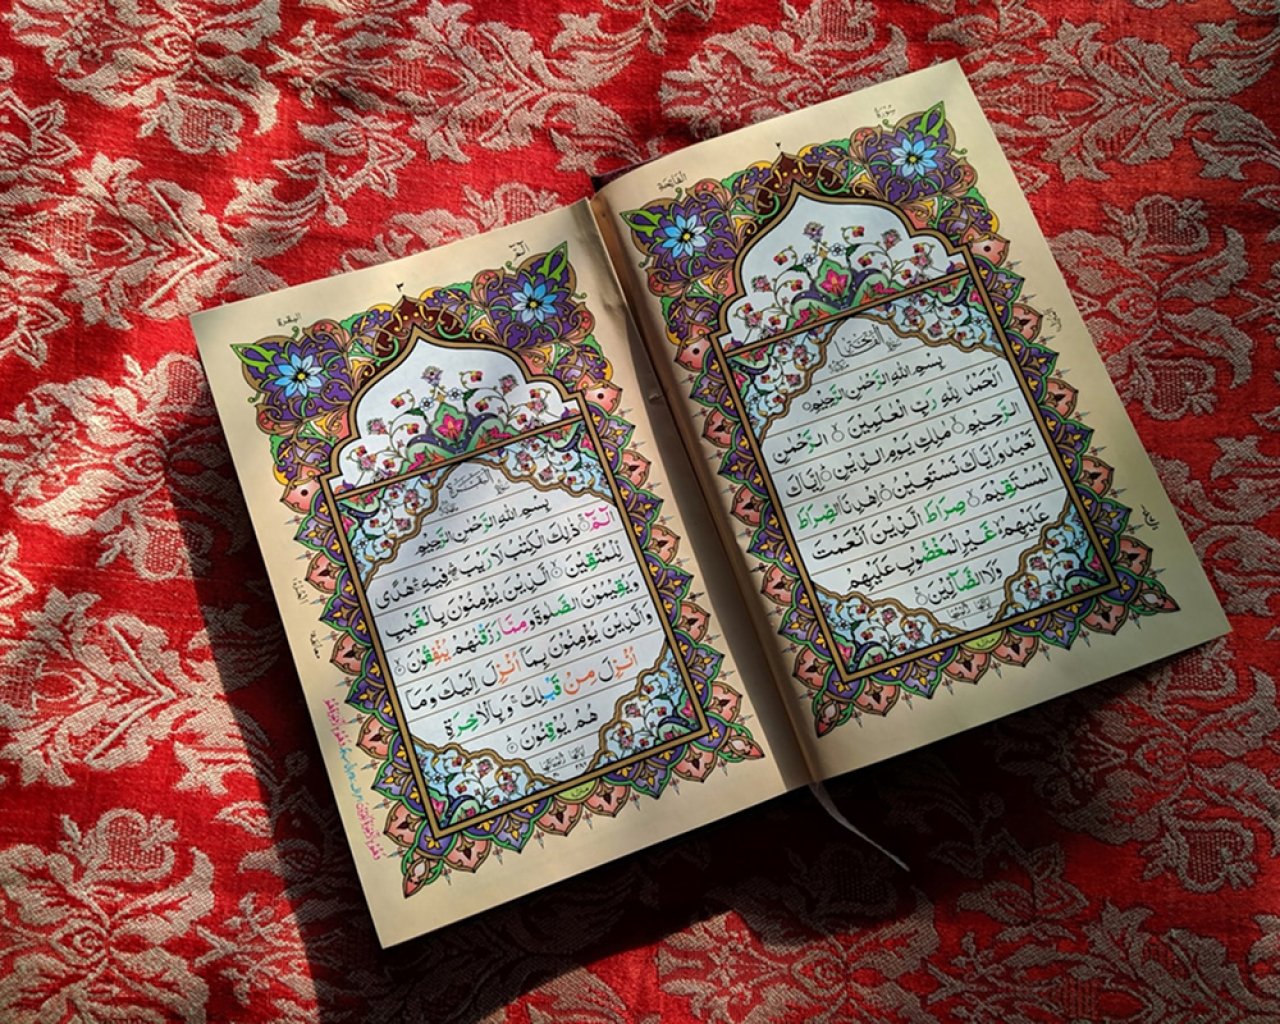 سورة
الفاتحة
٢
بِسْمِ اللهِ الرَّحْمٰنِ الرَّحِيْمِ
اَلْحَمْدُ لِلّٰهِ رَبِّ الْعٰلَمِيْنَ ۙ الرَّحْمٰنِ
الرَّحِيْمِ ۙ مٰلِكِ يَوْمِ الدِّيْنِ ۗ اِيَّاكَ
نَعْبُدُ وَاِيَّاكَ نَسْتَعِيْنُ ۗ اِهْدِنَا الصِّرَاطَ
الْمُسْتَقِيْمَ ۙ صِرَاطَ الَّذِيْنَ اَنْعَمْتَ
عَلَيْهِمْ ۙ غَيْرِ الْمَغْضُوْبِ عَلَيْهِمْ
وَلَا الضَّآلِّيْنَ
الٓمّٓ
البقرة
٣
بِسْمِ اللهِ الرَّحْمٰنِ الرَّحِيْمِ
الٓمّٓ ۚ ذٰلِكَ الْكِتٰبُ لَا رَيْبَ ۛ فِيْهِ ۛ هُدًى
لِّلْمُتَّقِيْنَ ۙ الَّذِيْنَ يُؤْمِنُوْنَ بِالْغَيْبِ
وَيُقِيْمُوْنَ الصَّلٰوةَ وَمِمَّا رَزَقْنٰهُمْ يُنْفِقُوْنَ ۙ
وَالَّذِيْنَ يُؤْمِنُوْنَ بِمَآ اُنْزِلَ اِلَيْكَ وَمَآ
اُنْزِلَ مِنْ قَبْلِكَ ۚ وَبِالْاٰخِرَةِ
هُمْ يُوْقِنُوْنَ ۗ